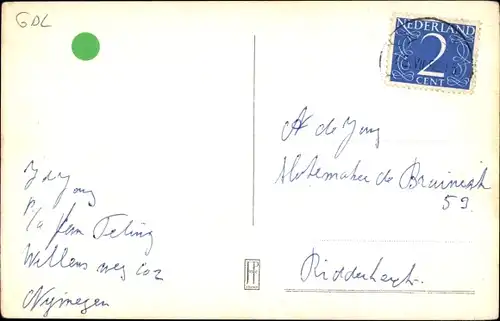 GDL
NEDERLAND
2
CENT
A de Jong
Slotemaker de Bruinestr
59.
Ridderkerk.
J d Jong
P/a fam Teling
Willemsweg 202
Nijmegen